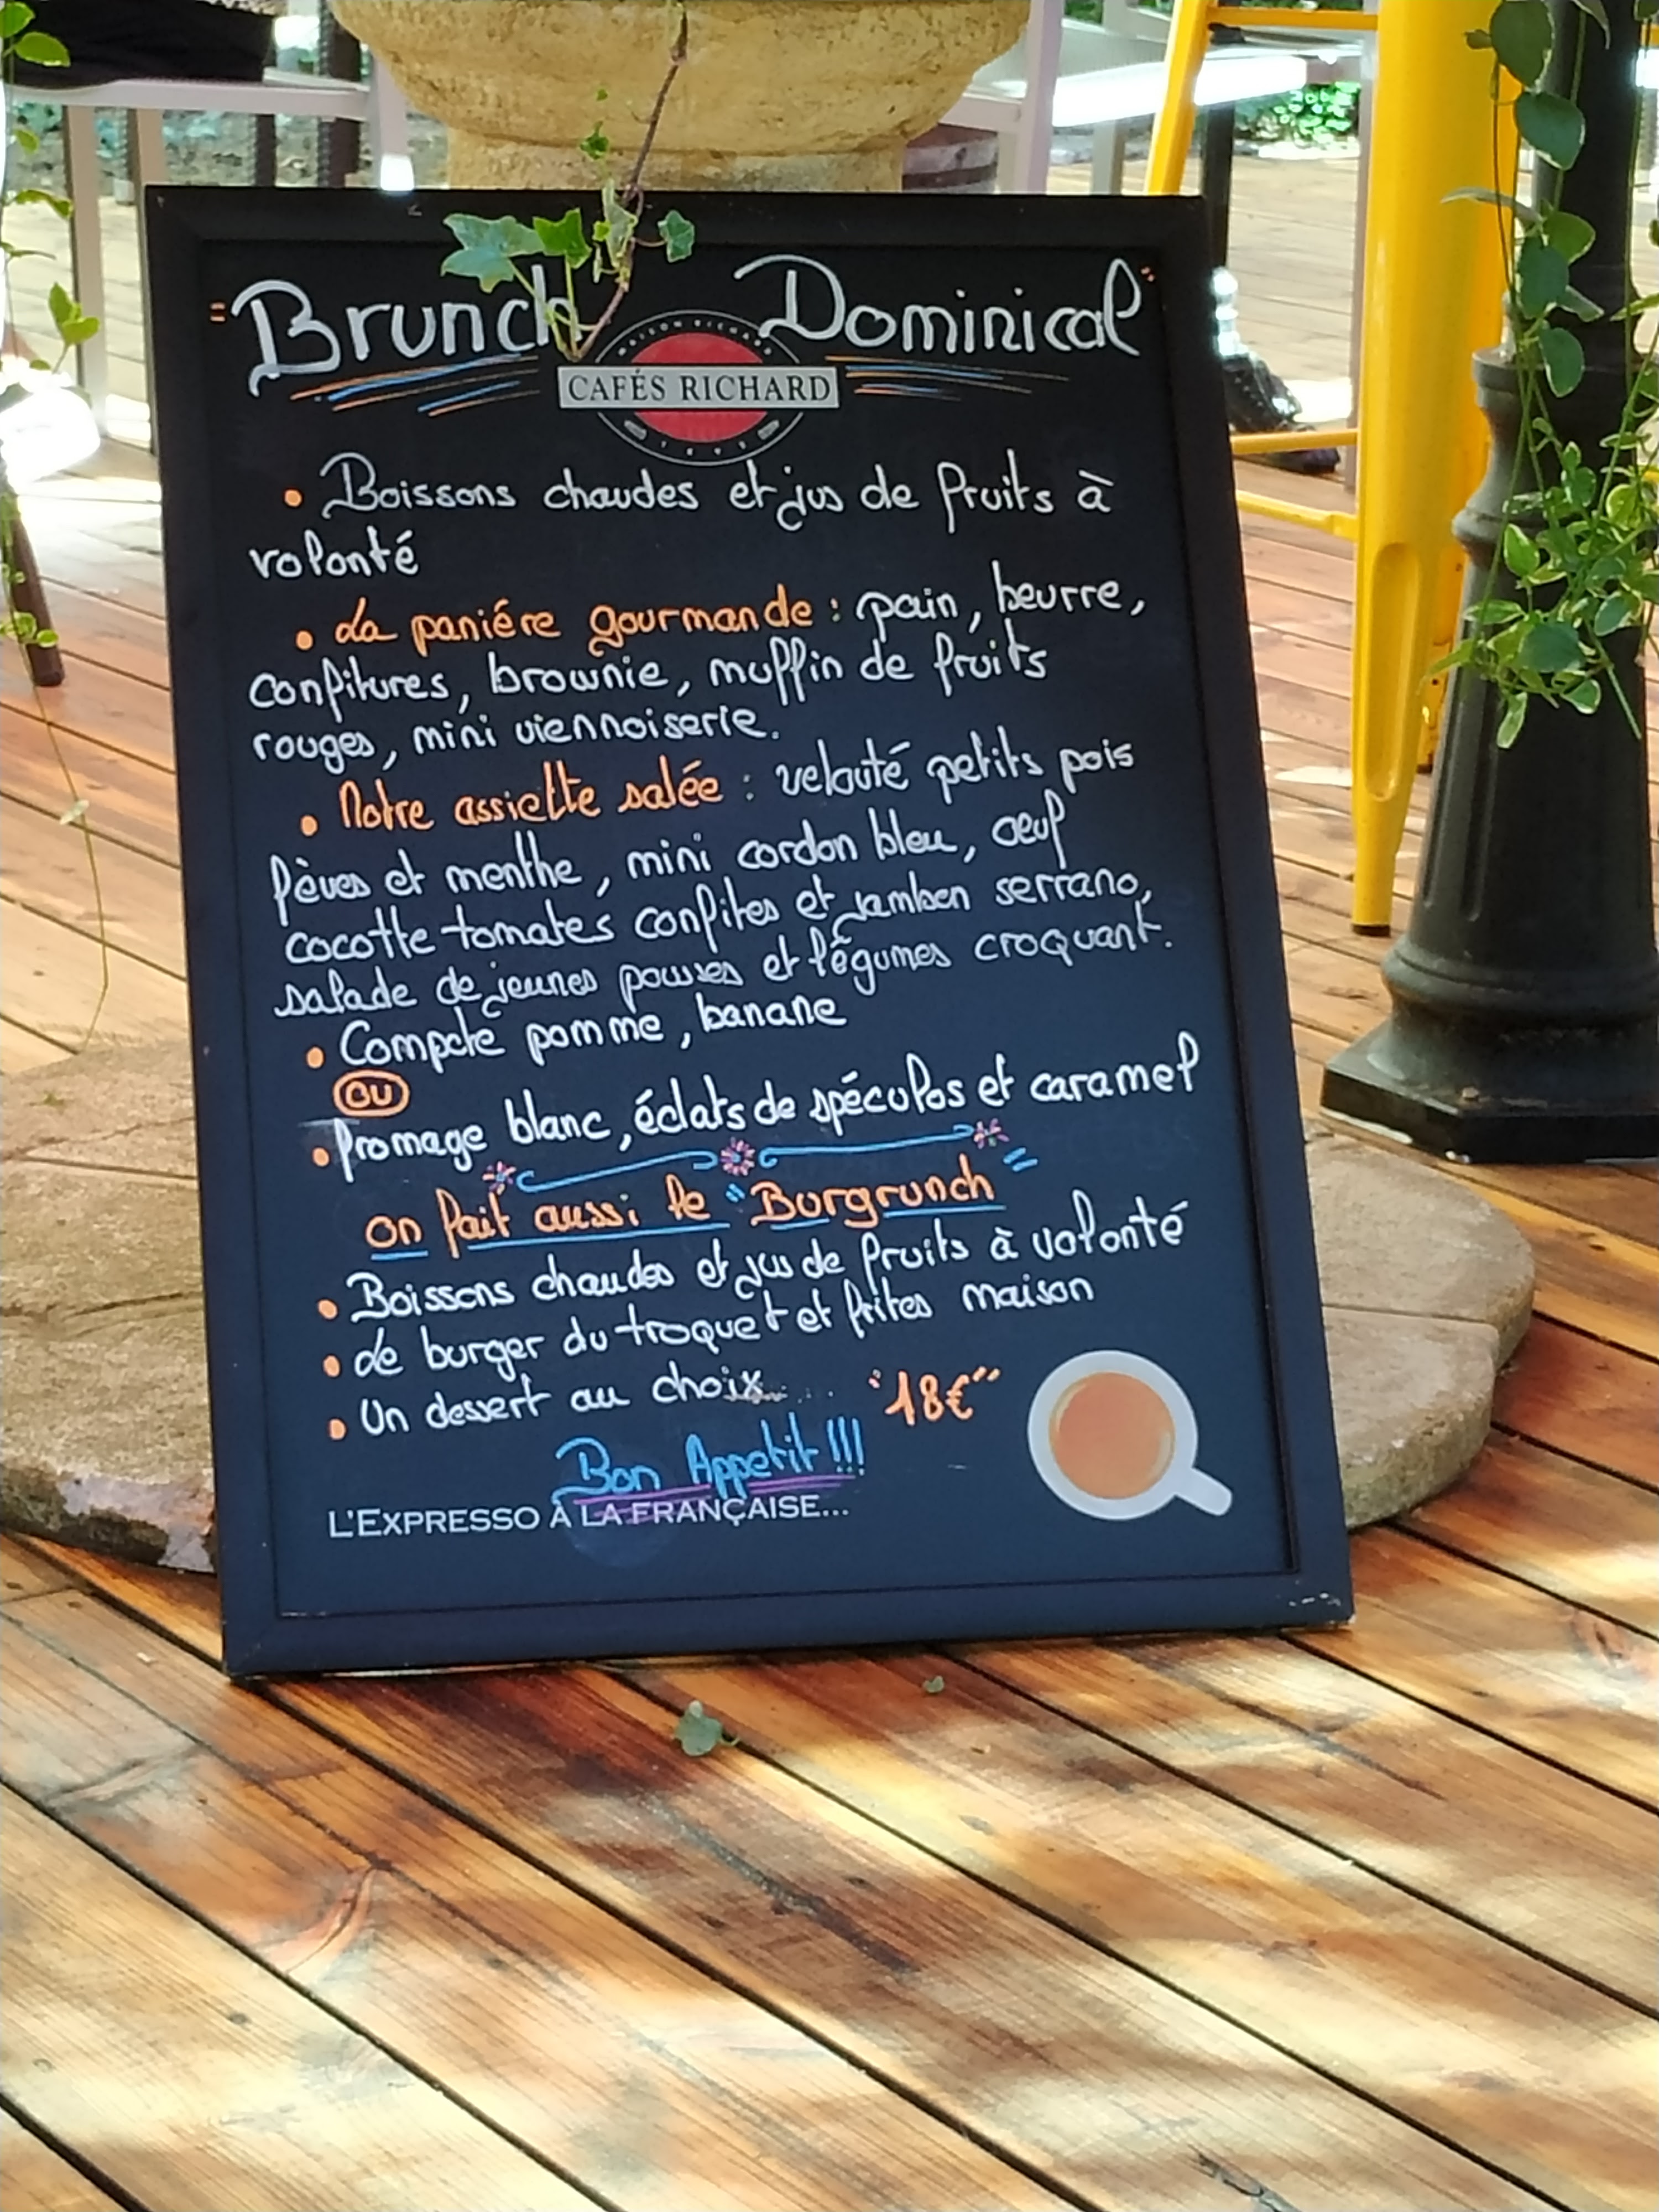 "Brunch Dominical"
MAISON RICHARD
CAFÉS RICHARD
• Boissons chaudes et jus de fruits à
volonté
• La paniére gourmande : pain, beurre,
confitures, brownie, muffin de fruits
rouges, mini viennoiserie.
• Notre assiette salée : velouté petits pois
fèves et menthe, mini cordon bleu, œuf
cocotte tomates confites et jambon serrano,
salade de jeunes pousses et légumes croquant.
• Compote pomme, banane
OU
• fromage blanc, éclats de spéculos et caramel
on fait aussi le "Burgrunch"
• Boissons chaudes et jus de fruits à volonté
• de burger du troquet et frites maison
• Un dessert au choix.... "18€"
Bon Appetit !!!
L'EXPRESSO À LA FRANÇAISE...